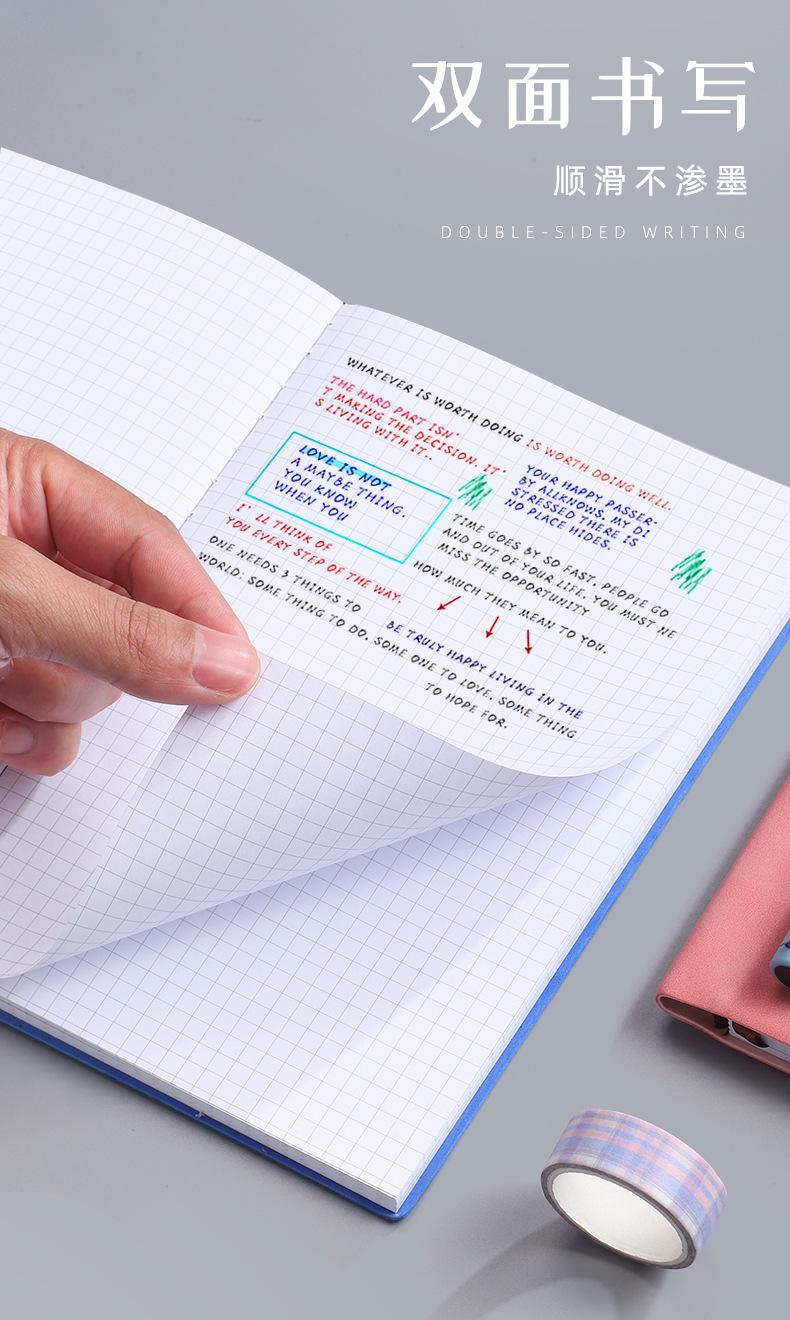 双面书写
顺滑不渗墨
DOUBLE-SIDED WRITING
WHATEVER IS WORTH DOING IS WORTH DOING WELL.
THE HARD PART ISN'
T MAKING THE DECISION. IT'
S LIVING WITH IT..
LOVE IS NOT
A MAYBE THING.
YOU KNOW
WHEN YOU
YOUR HAPPY PASSER-
BY ALLKNOWS. MY DI
STRESSED THERE IS
NO PLACE HIDES.
I' LL THINK OF
YOU EVERY STEP OF THE WAY.
TIME GOES BY SO FAST. PEOPLE GO
AND OUT OF YOUR LIFE. YOU MUST NE
MISS THE OPPORTUNITY
HOW MUCH THEY MEAN TO YOU.
ONE NEEDS 3 THINGS TO
BE TRULY HAPPY LIVING IN THE
WORLD: SOME THING TO DO. SOME ONE TO LOVE. SOME THING
TO HOPE FOR.